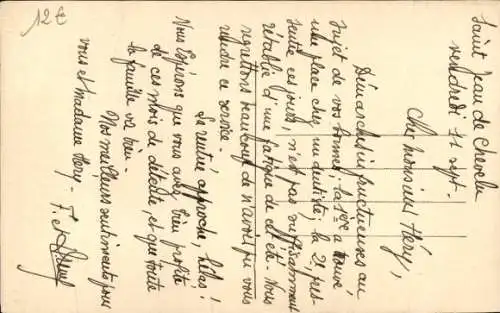 12 €
Saint Jean de Chevelu
vendredi 11 sept.
Cher Monsieur Héry,
Démarches infructueuses au
sujet de vos bonnes ; la 1ère a trouvé
une place chez un dentiste ; la 2e, pres-
sentie ces jours, n'est pas suffisamment
rétablie d'une fatigue de cet été. Nous
regrettons beaucoup de n'avoir pu vous
rendre ce service.
La rentrée approche, hélas !
Nous espérons que vous avez bien profité
de ces mois de détente, et que toute
la famille va bien.
Nos meilleurs sentiments pour
vous et madame Héry.